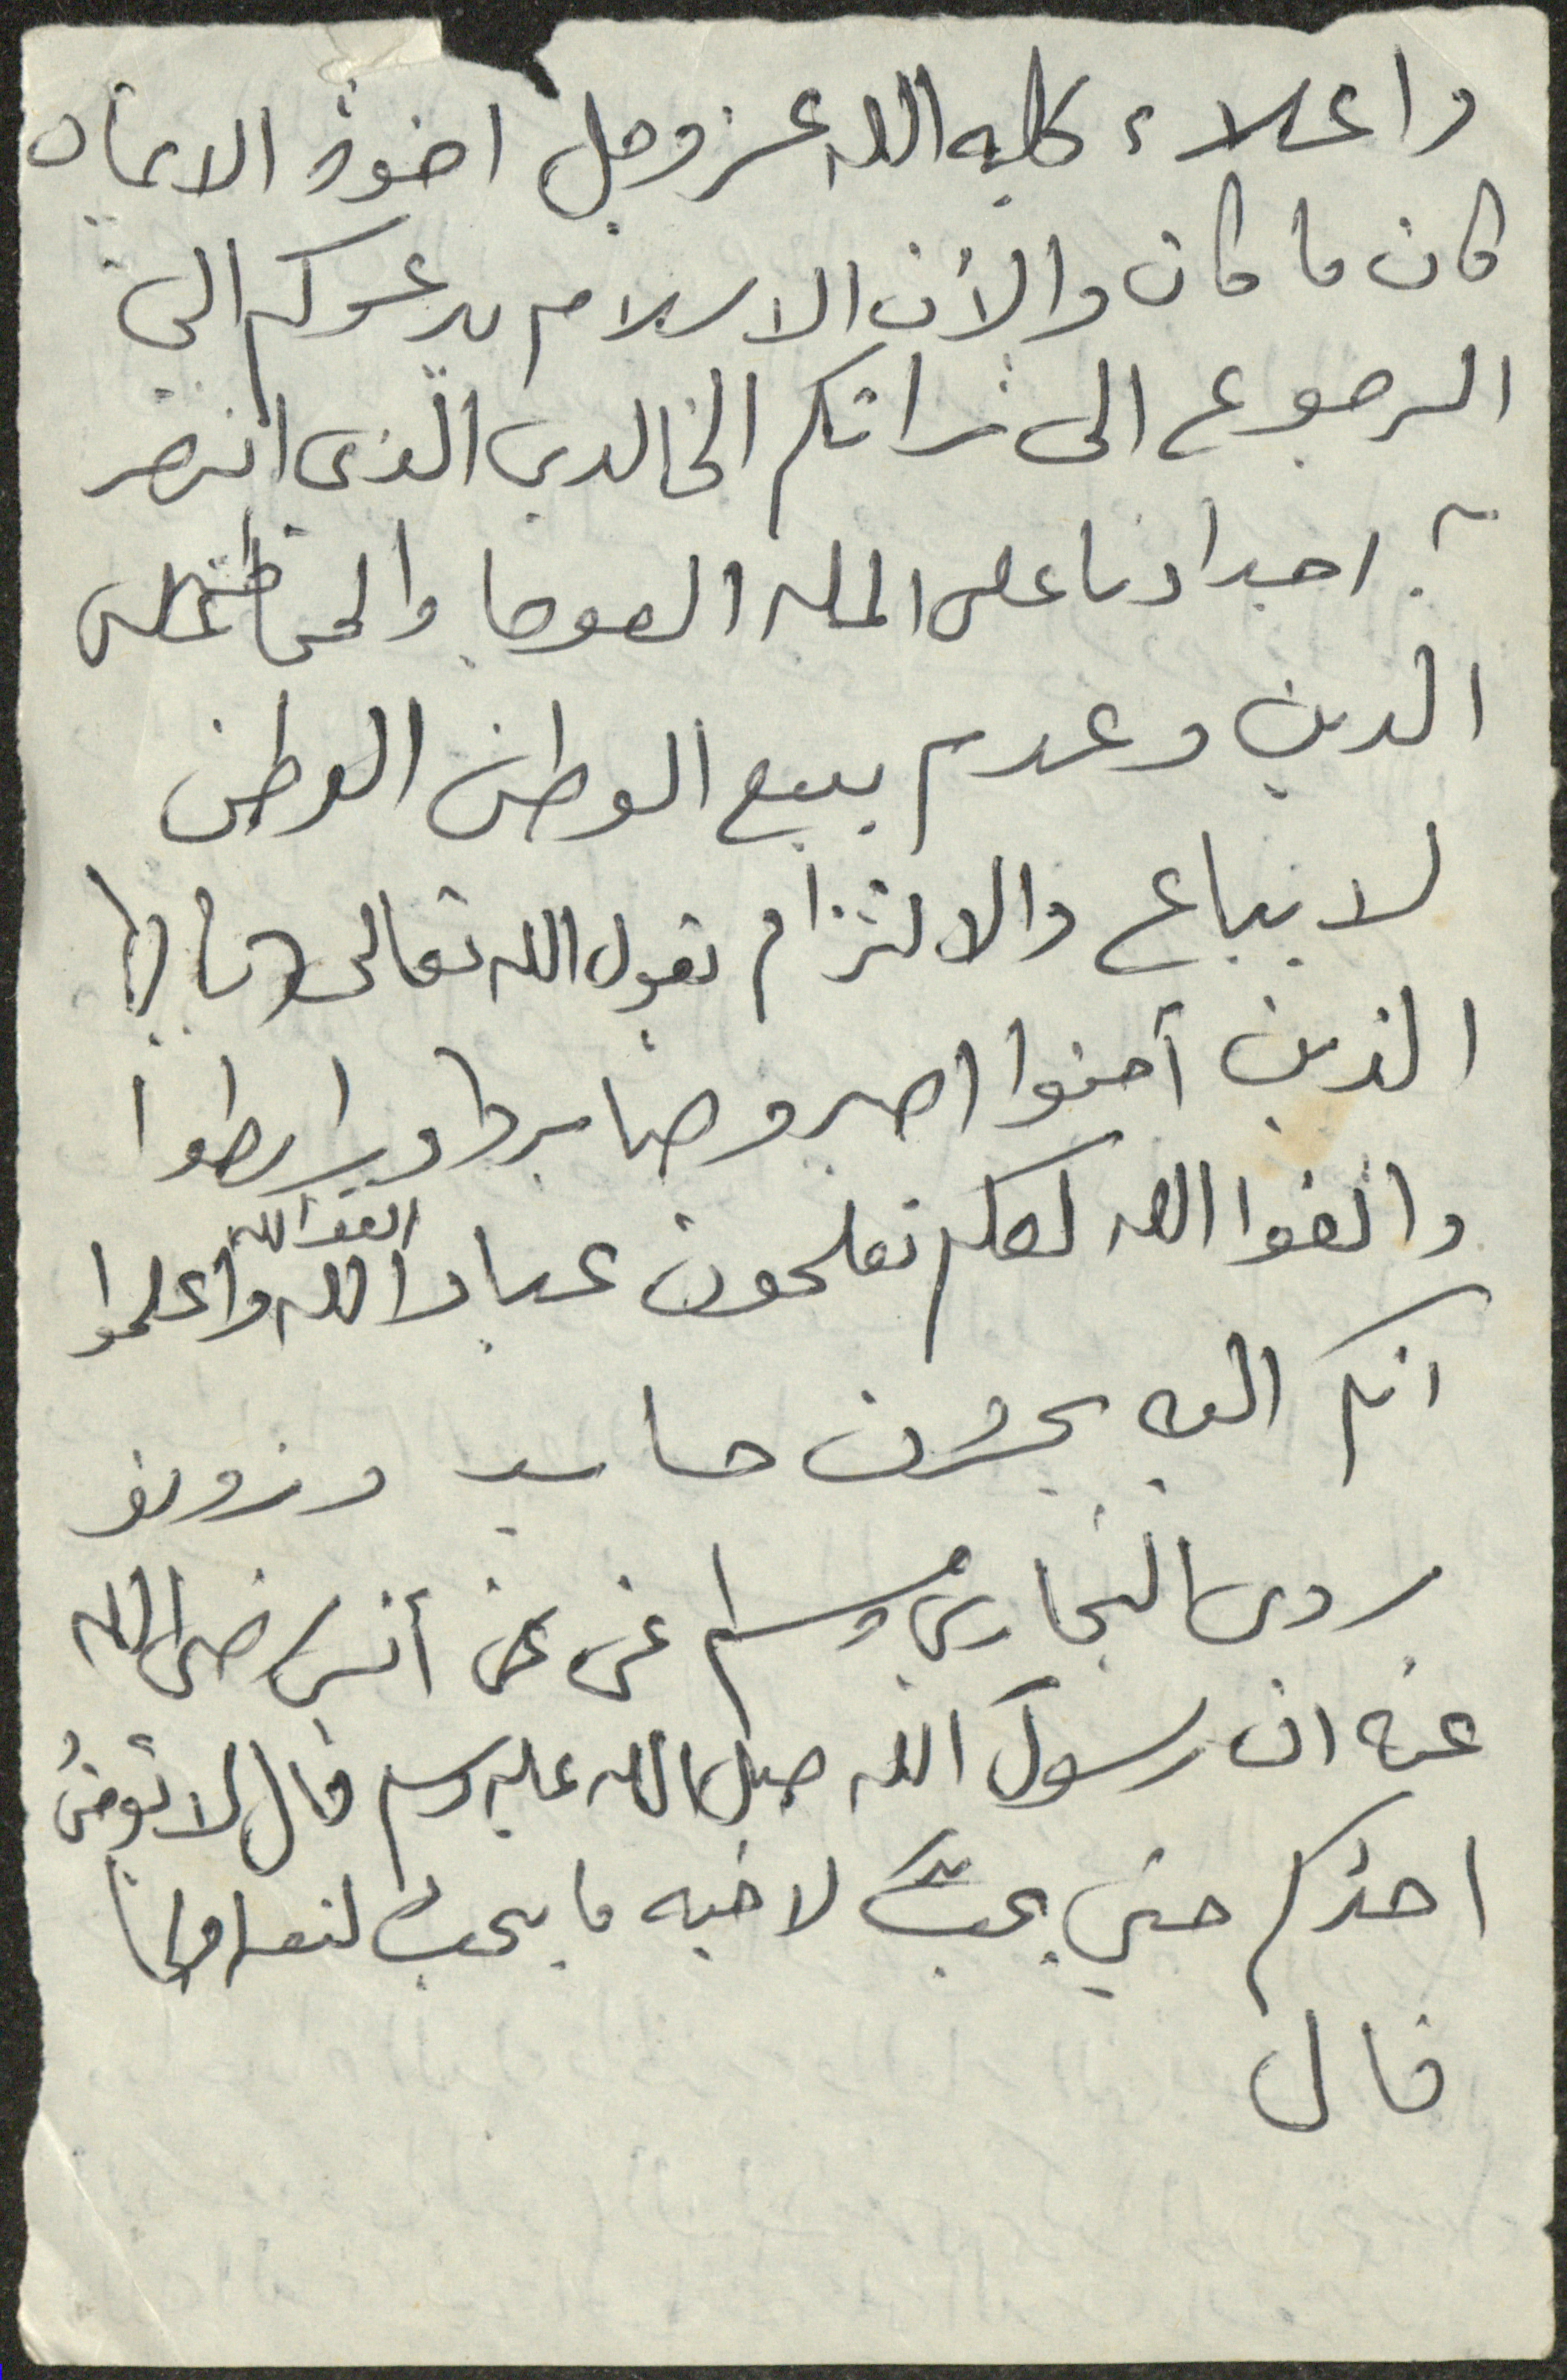 واعلاء كلمه الله عز وجل اخوة الايمان
كان ما كان والأن الاسلام يدعوكم الى
الرجوع الى تراثكم الخالدي الذي انتصر
به اجدادنا على المله العوجا والحفاظ على
الدين وعدم بيع الوطن الوطن
لا يباع والالتزام بقول الله تعالى يا ايها
الذين آمنوا اصبرو صابروا ورابطوا
واتقوا الله لعلكم تفلحون عباد الله اتقوا الله واعلموا
انكم اليه تحشرون
روى البخاري ومسلم عن عن أنس رضي الله
عنه ان رسول الله صلى الله عليه وسلم قال لا يؤمنُ
احدُكم حتى يحبَّ لاخيه ما يحبُ لنفسه
قال